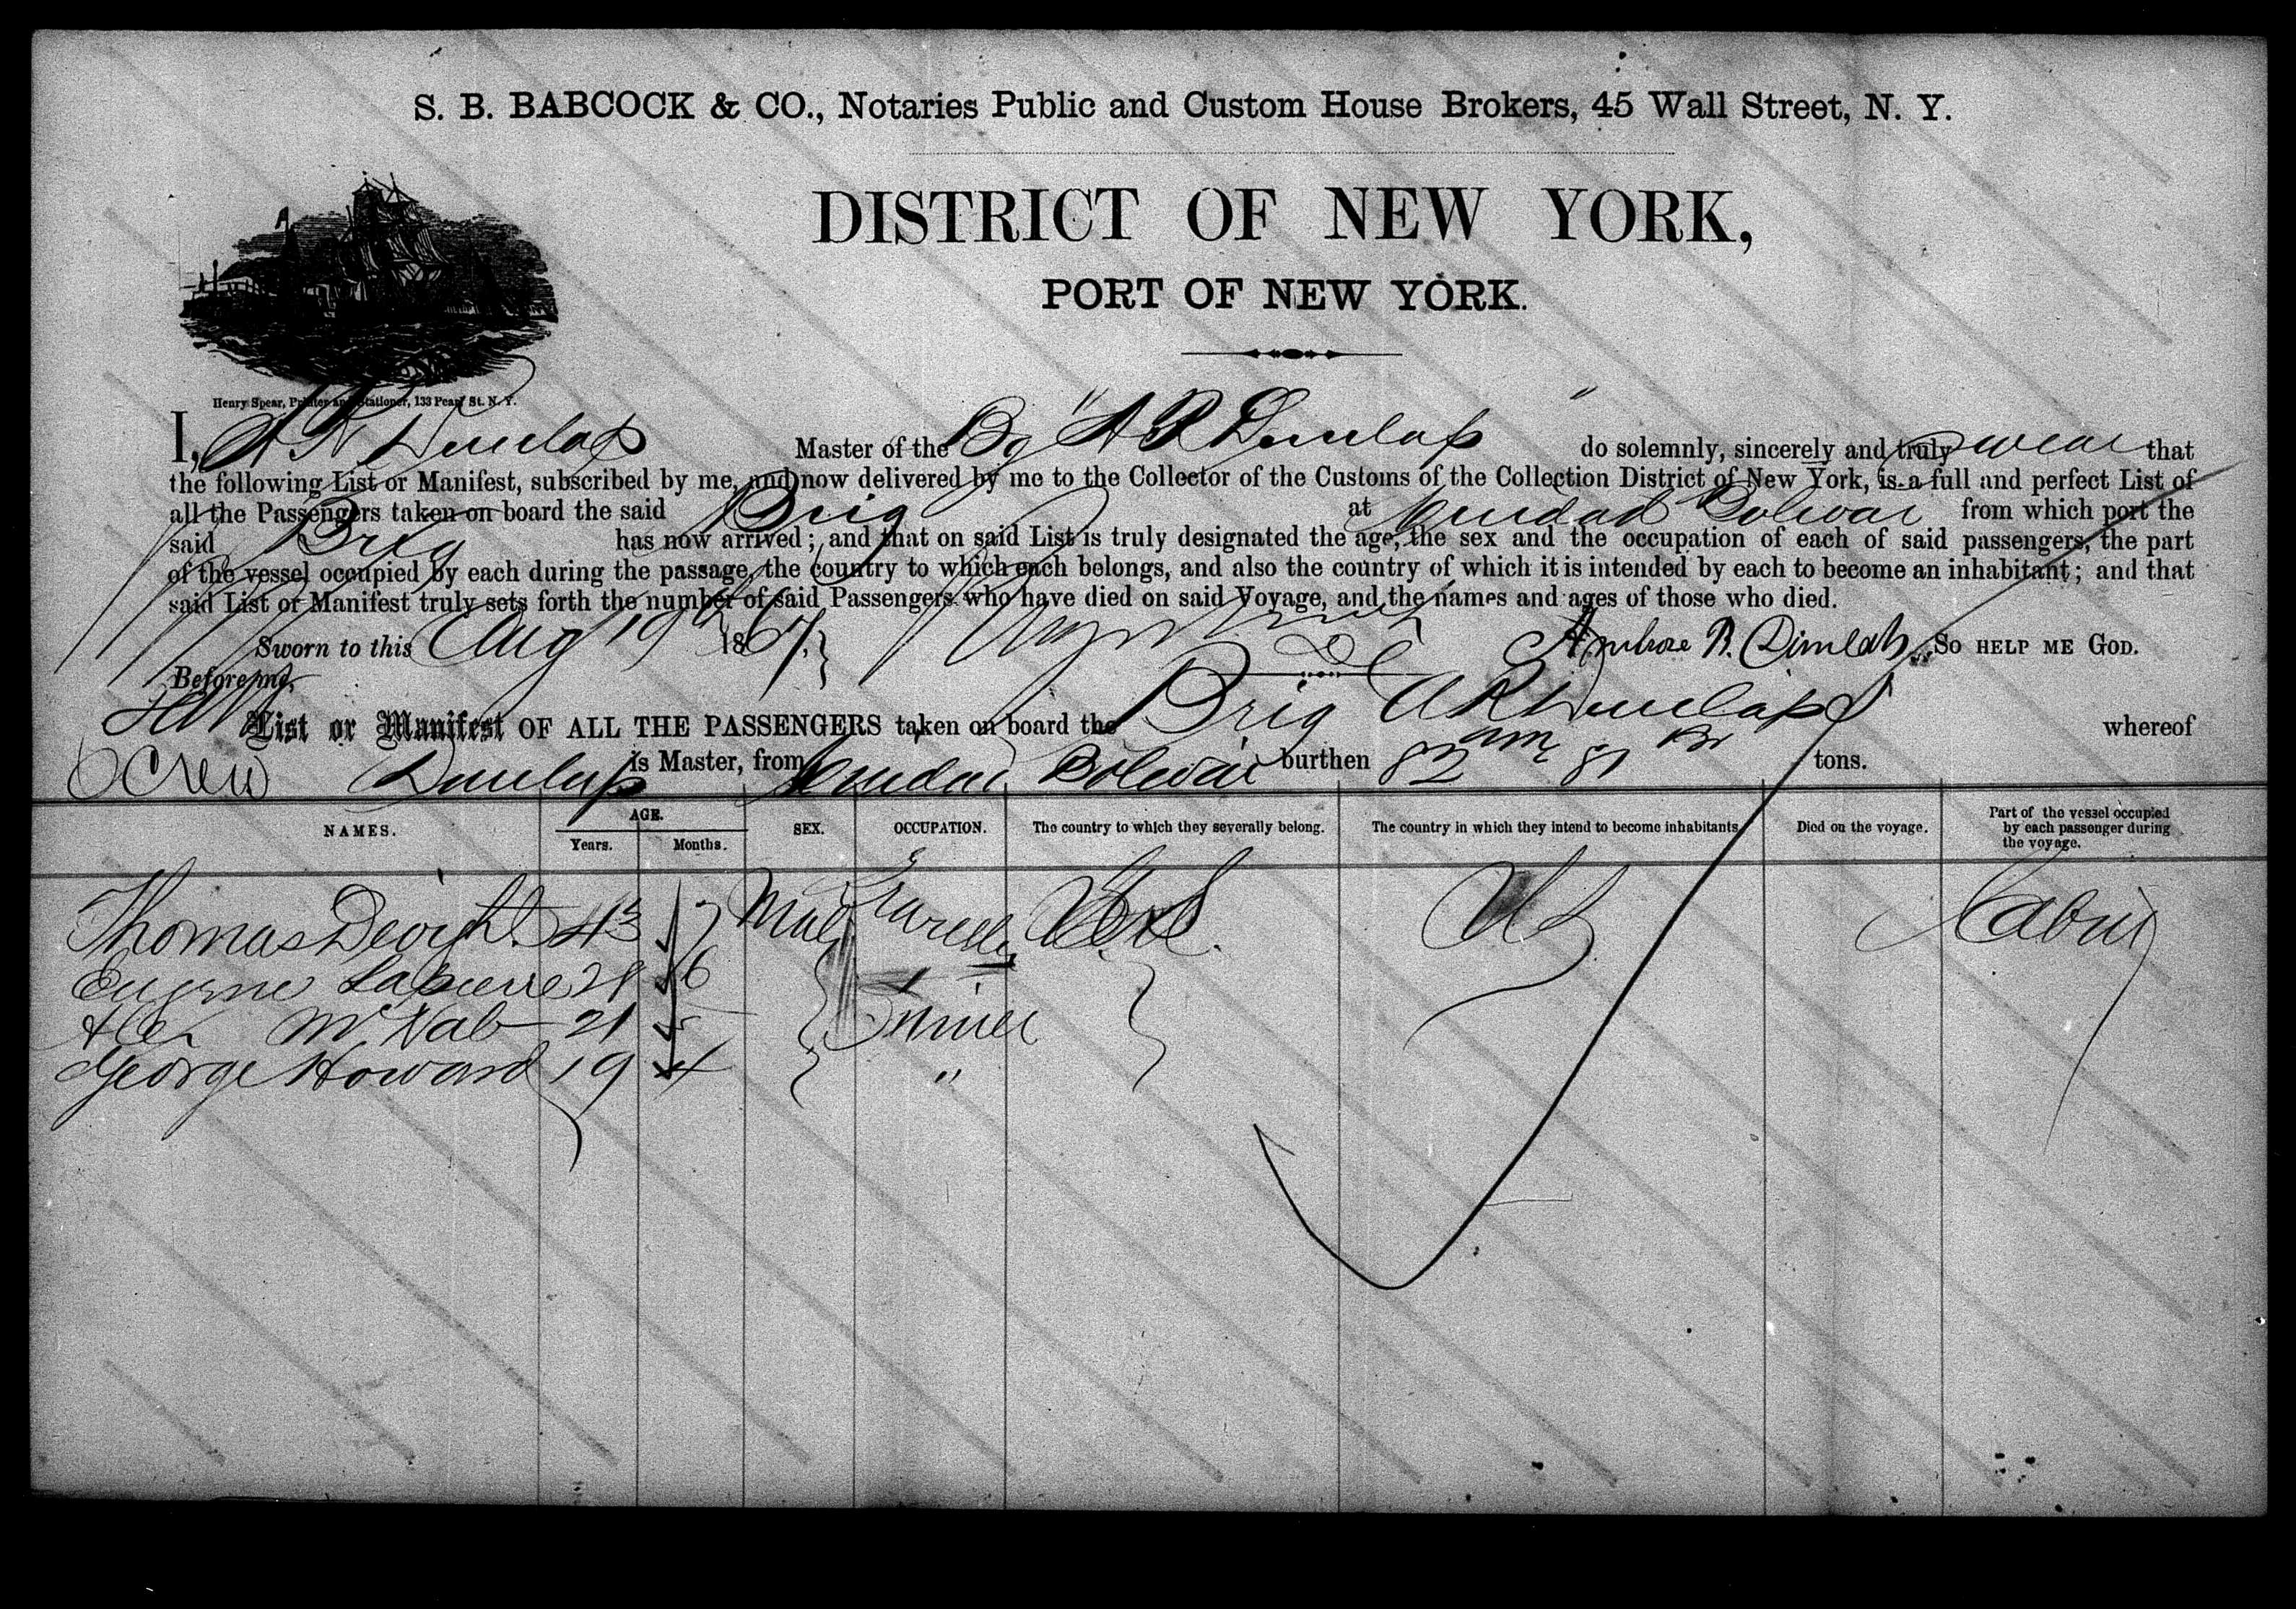 S. B. BABCOCK & CO., Notaries Public and Custom House Brokers, 45 Wall Street, N. Y.
DISTRICT OF NEW YORK,
PORT OF NEW YORK.
Henry Spear, Printer and Stationer, 133 Pearl St. N. Y.
I, A R Dunlap Master of the Bg "A R Dunlap" do solemnly, sincerely and truly swear that
the following List or Manifest, subscribed by me, and now delivered by me to the Collector of the Customs of the Collection District of New York, is a full and perfect List of
all the Passengers taken on board the said Brig at Ciudad Bolivar from which port the
said Brig has now arrived; and that on said List is truly designated the age, the sex and the occupation of each of said passengers, the part
of the vessel occupied by each during the passage, the country to which each belongs, and also the country of which it is intended by each to become an inhabitant; and that
said List or Manifest truly sets forth the number of said Passengers who have died on said Voyage, and the names and ages of those who died.
Sworn to this Aug 19th 1867. Ambrose R. Dunlap So HELP ME GOD.
Before me,
List or Manifest OF ALL THE PASSENGERS taken on board the Brig A R Dunlap whereof
Dunlap is Master, from Ciudad Bolivar burthen tons.
8 Crew
NAMES. AGE. Years. Months. SEX. OCCUPATION. The country to which they severally belong. The country in which they intend to become inhabitants. Died on the voyage. Part of the vessel occupied by each passenger during the voyage.
Thomas Dwight 43 7 Male U.S. US Cabin
Eugene Lapierre 28 6 "
Alex McNab 21 5 Miner
George Howard 19 4 "